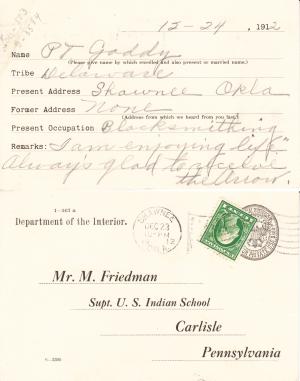 12-24, 1912
Name PT Gaddy
(Please give name by which enrolled and also present or married name.)
Tribe Delaware
Present Address Shawnee Okla
Former Address None
(Address from which we heard from you last.)
Present Occupation Blacksmithing
Remarks: I am enjoying life.
Always glad to receive
the Arrow.
Department of the Interior.
SHAWNEE
DEC 23
Mr. M. Friedman
Supt. U. S. Indian School
Carlisle
Pennsylvania